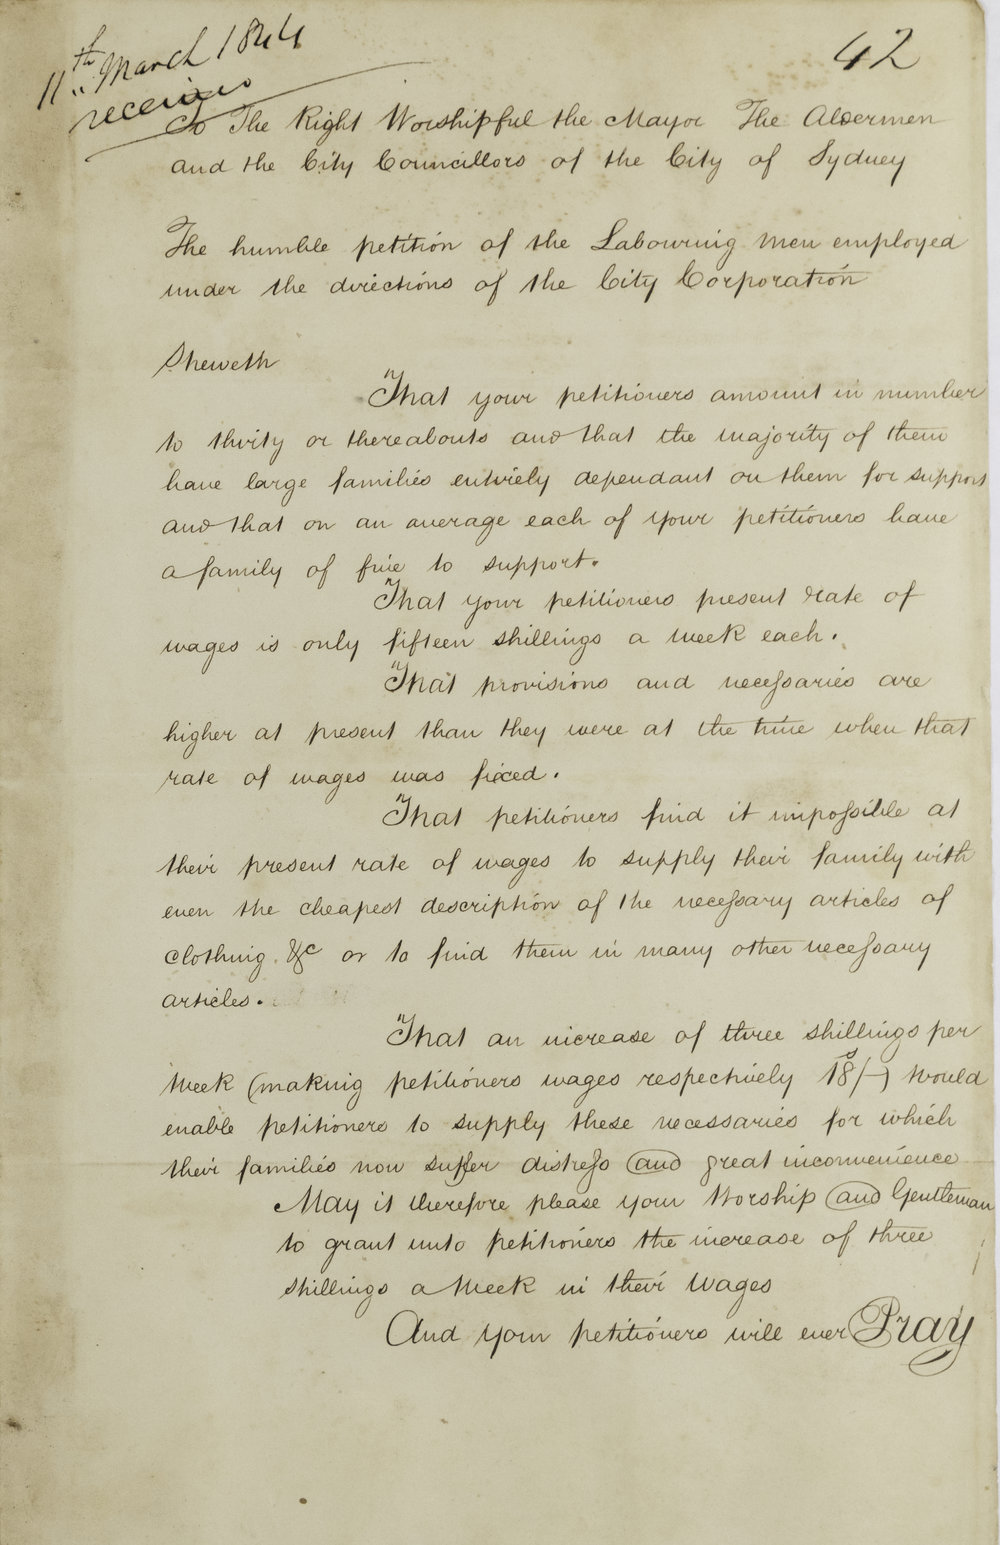 11th March 1844
received
42
To The Right Worshipful the Mayor The Aldermen
and the City Councillors of the City of Sydney
The humble petition of the Labouring men employed
under the directions of the City Corporation
Sheweth
"That your petitioners amount in number
to thirty or thereabouts and that the majority of them
have large families entirely dependant on them for support
and that on an average each of your petitioners have
a family of five to support.
"That your petitioners present rate of
wages is only fifteen shillings a week each.
"That provisions and necessaries are
higher at present than they were at the time when that
rate of wages was fixed.
"That petitioners find it impossible at
their present rate of wages to supply their family with
even the cheapest description of the necessary articles of
clothing &c or to find them in many other necessary
articles.
"That an increase of three shillings per
Week (making petitioners wages respectively 18s/-) would
enable petitioners to supply these necessaries for which
their families now suffer distress and great inconvenience
May it therefore please your Worship and Gentleman
to grant unto petitioners the increase of three
shillings a Week in their Wages
And your petitioners will ever Pray